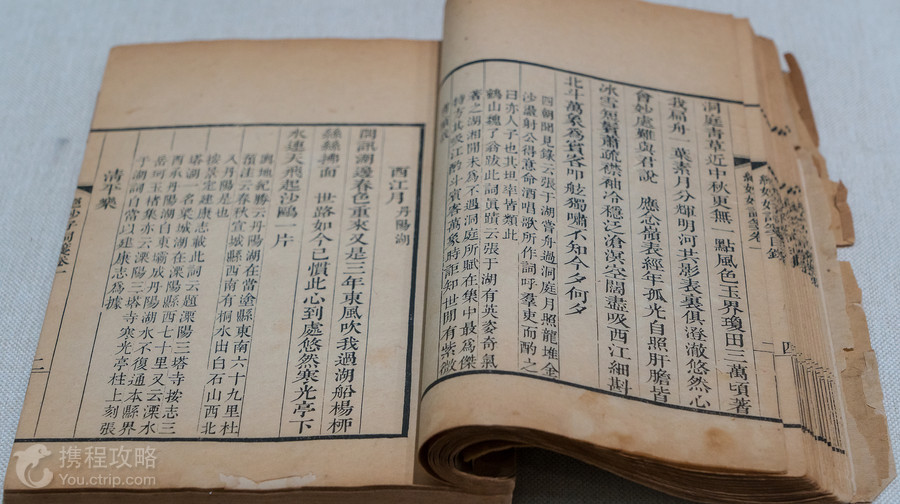 洞庭青草近中秋更無一點風色玉界瓊田三萬頃著
我扁舟一葉素月分輝明河共影表裏俱澄澈悠然心
會妙處難與君說　應念嶺表經年孤光自照肝膽皆
冰雪短鬢蕭疏襟袖冷穩泛滄溟空闊盡吸西江細斟
北斗萬象為賓客叩舷獨嘯不知今夕何夕
四朝聞見錄云張于湖嘗舟過洞庭月照龍堆金
沙盪射公得意命酒唱歌所作詞呼羣吏而酌之
曰亦人子也其坦率皆類此
鶴山魏了翁跋此詞眞蹟云張于湖有英姿奇氣
著之湖湘閒未為不遇洞庭所賦在集中最為傑
特方其吸江酌斗賓客萬象時詎知世間有紫微
西江月 丹陽湖
問訊湖邊春色重來又是三年東風吹我過湖船楊柳
絲絲拂面　世路如今已慣此心到處悠然寒光亭下
水連天飛起沙鷗一片
輿地紀勝云丹陽湖在當塗縣東南六十九里杜
預注云春秋宣城縣西南有桐水出白石山西北
入丹陽是也
按景定建康志載此詞云題溧陽三塔寺按志三
塔湖一名梁城湖在溧陽縣西七十里又云溧水
西承丹陽湖自東壩成丹陽湖水不復通本縣界
岳珂玉楮集亦云溧陽三塔寺寒光亭柱上刻張
于湖詞自當以建康志為據
清平樂
二
四
携程攻略
You.ctrip.com